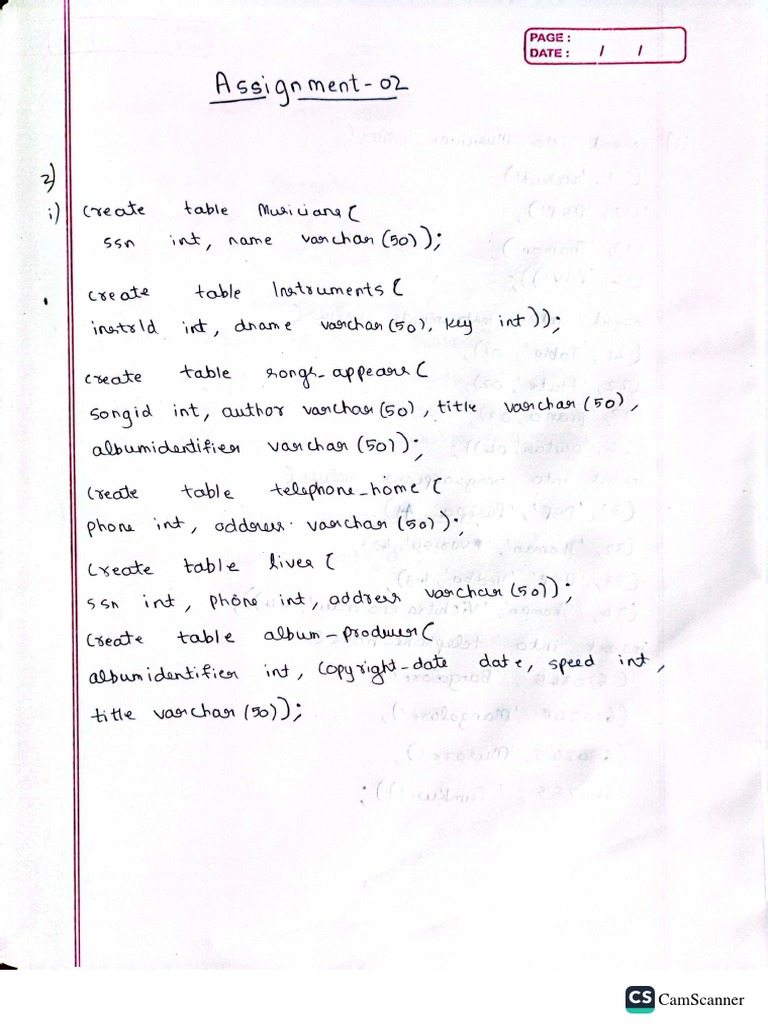 PAGE :
DATE : / /
Assignment-02
2)
i) create table Musicians(
ssn int, name varchar(50));
create table Instruments(
instrId int, dname varchar(50), key int));
create table songs_appears(
songid int, author varchar(50), title varchar(50),
albumidentifier varchar(50));
create table telephone_home(
phone int, address varchar(50));
create table lives(
ssn int, phone int, address varchar(50));
create table album-producer(
albumidentifier int, copyright-date date, speed int,
title varchar(50));
CS CamScanner